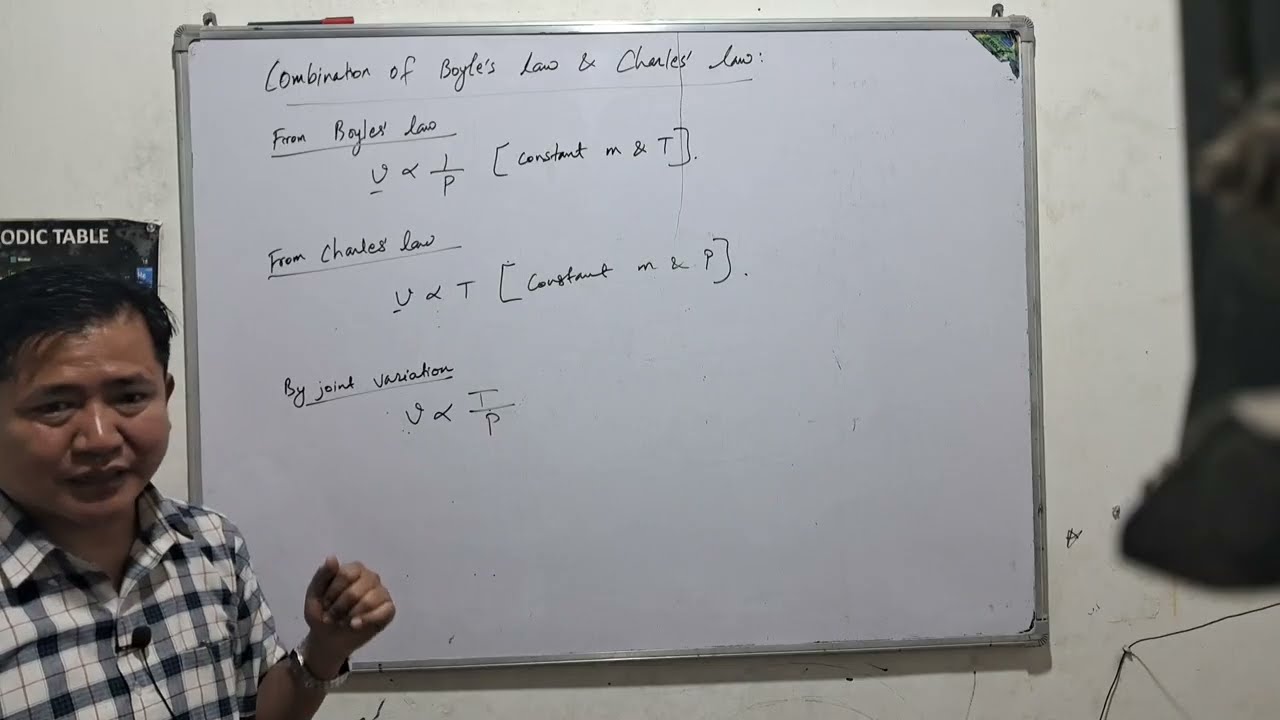 Combination of Boyle's Law & Charles' law:
From Boyles' law
V ∝ 1/P [Constant m & T].
From Charles' law
V ∝ T [Constant m & P].
By joint variation
V ∝ T/P
ODIC TABLE